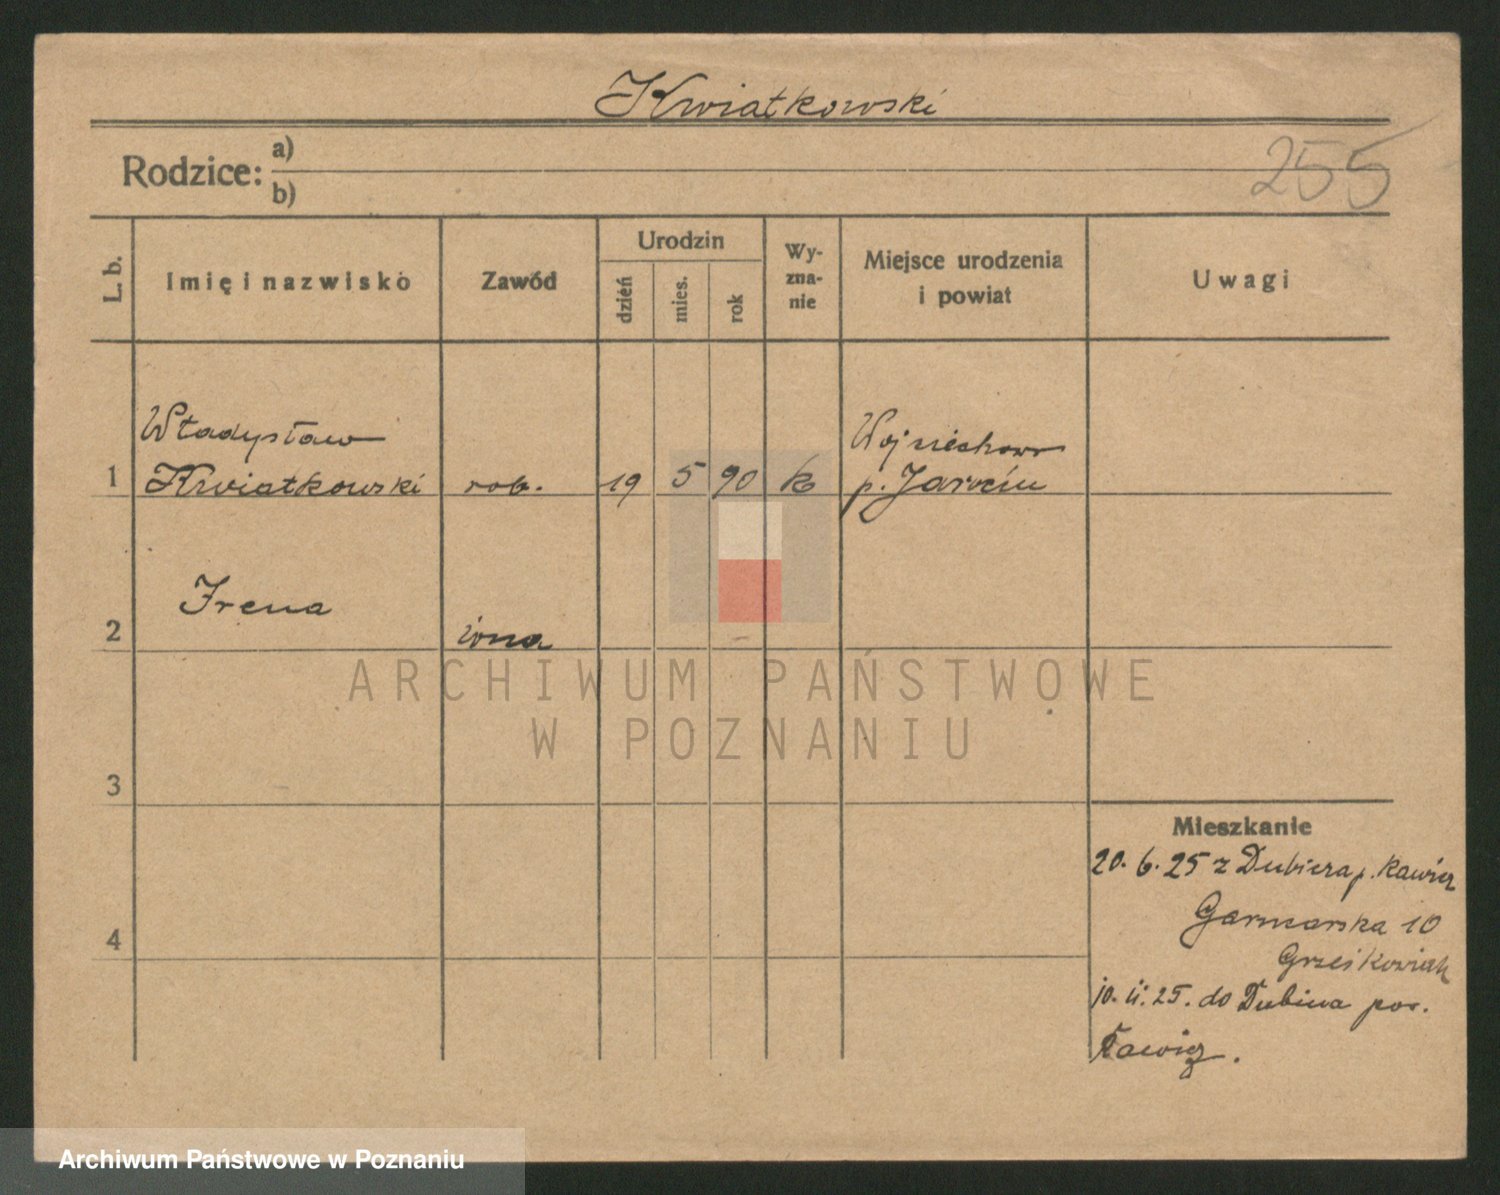 Kwiatkowski
Rodzice: a)
b)
255
L. b.
Imię i nazwisko
Zawód
Urodzin
dzień
mies.
rok
Wy-
zna-
nie
Miejsce urodzenia
i powiat
Uwagi
Władysław
1 Kwiatkowski rob. 19 5 90 k
Wojciechowo
p. Jarocin
Irena
2 żona
ARCHIWUM PAŃSTWOWE
W POZNANIU
3
Mieszkanie
20. 6. 25 z Dubina p. Rawicz
4
Garncarska 10
Grześkowiak
10. 11. 25. do Dubina pow.
Rawicz.
Archiwum Państwowe w Poznaniu